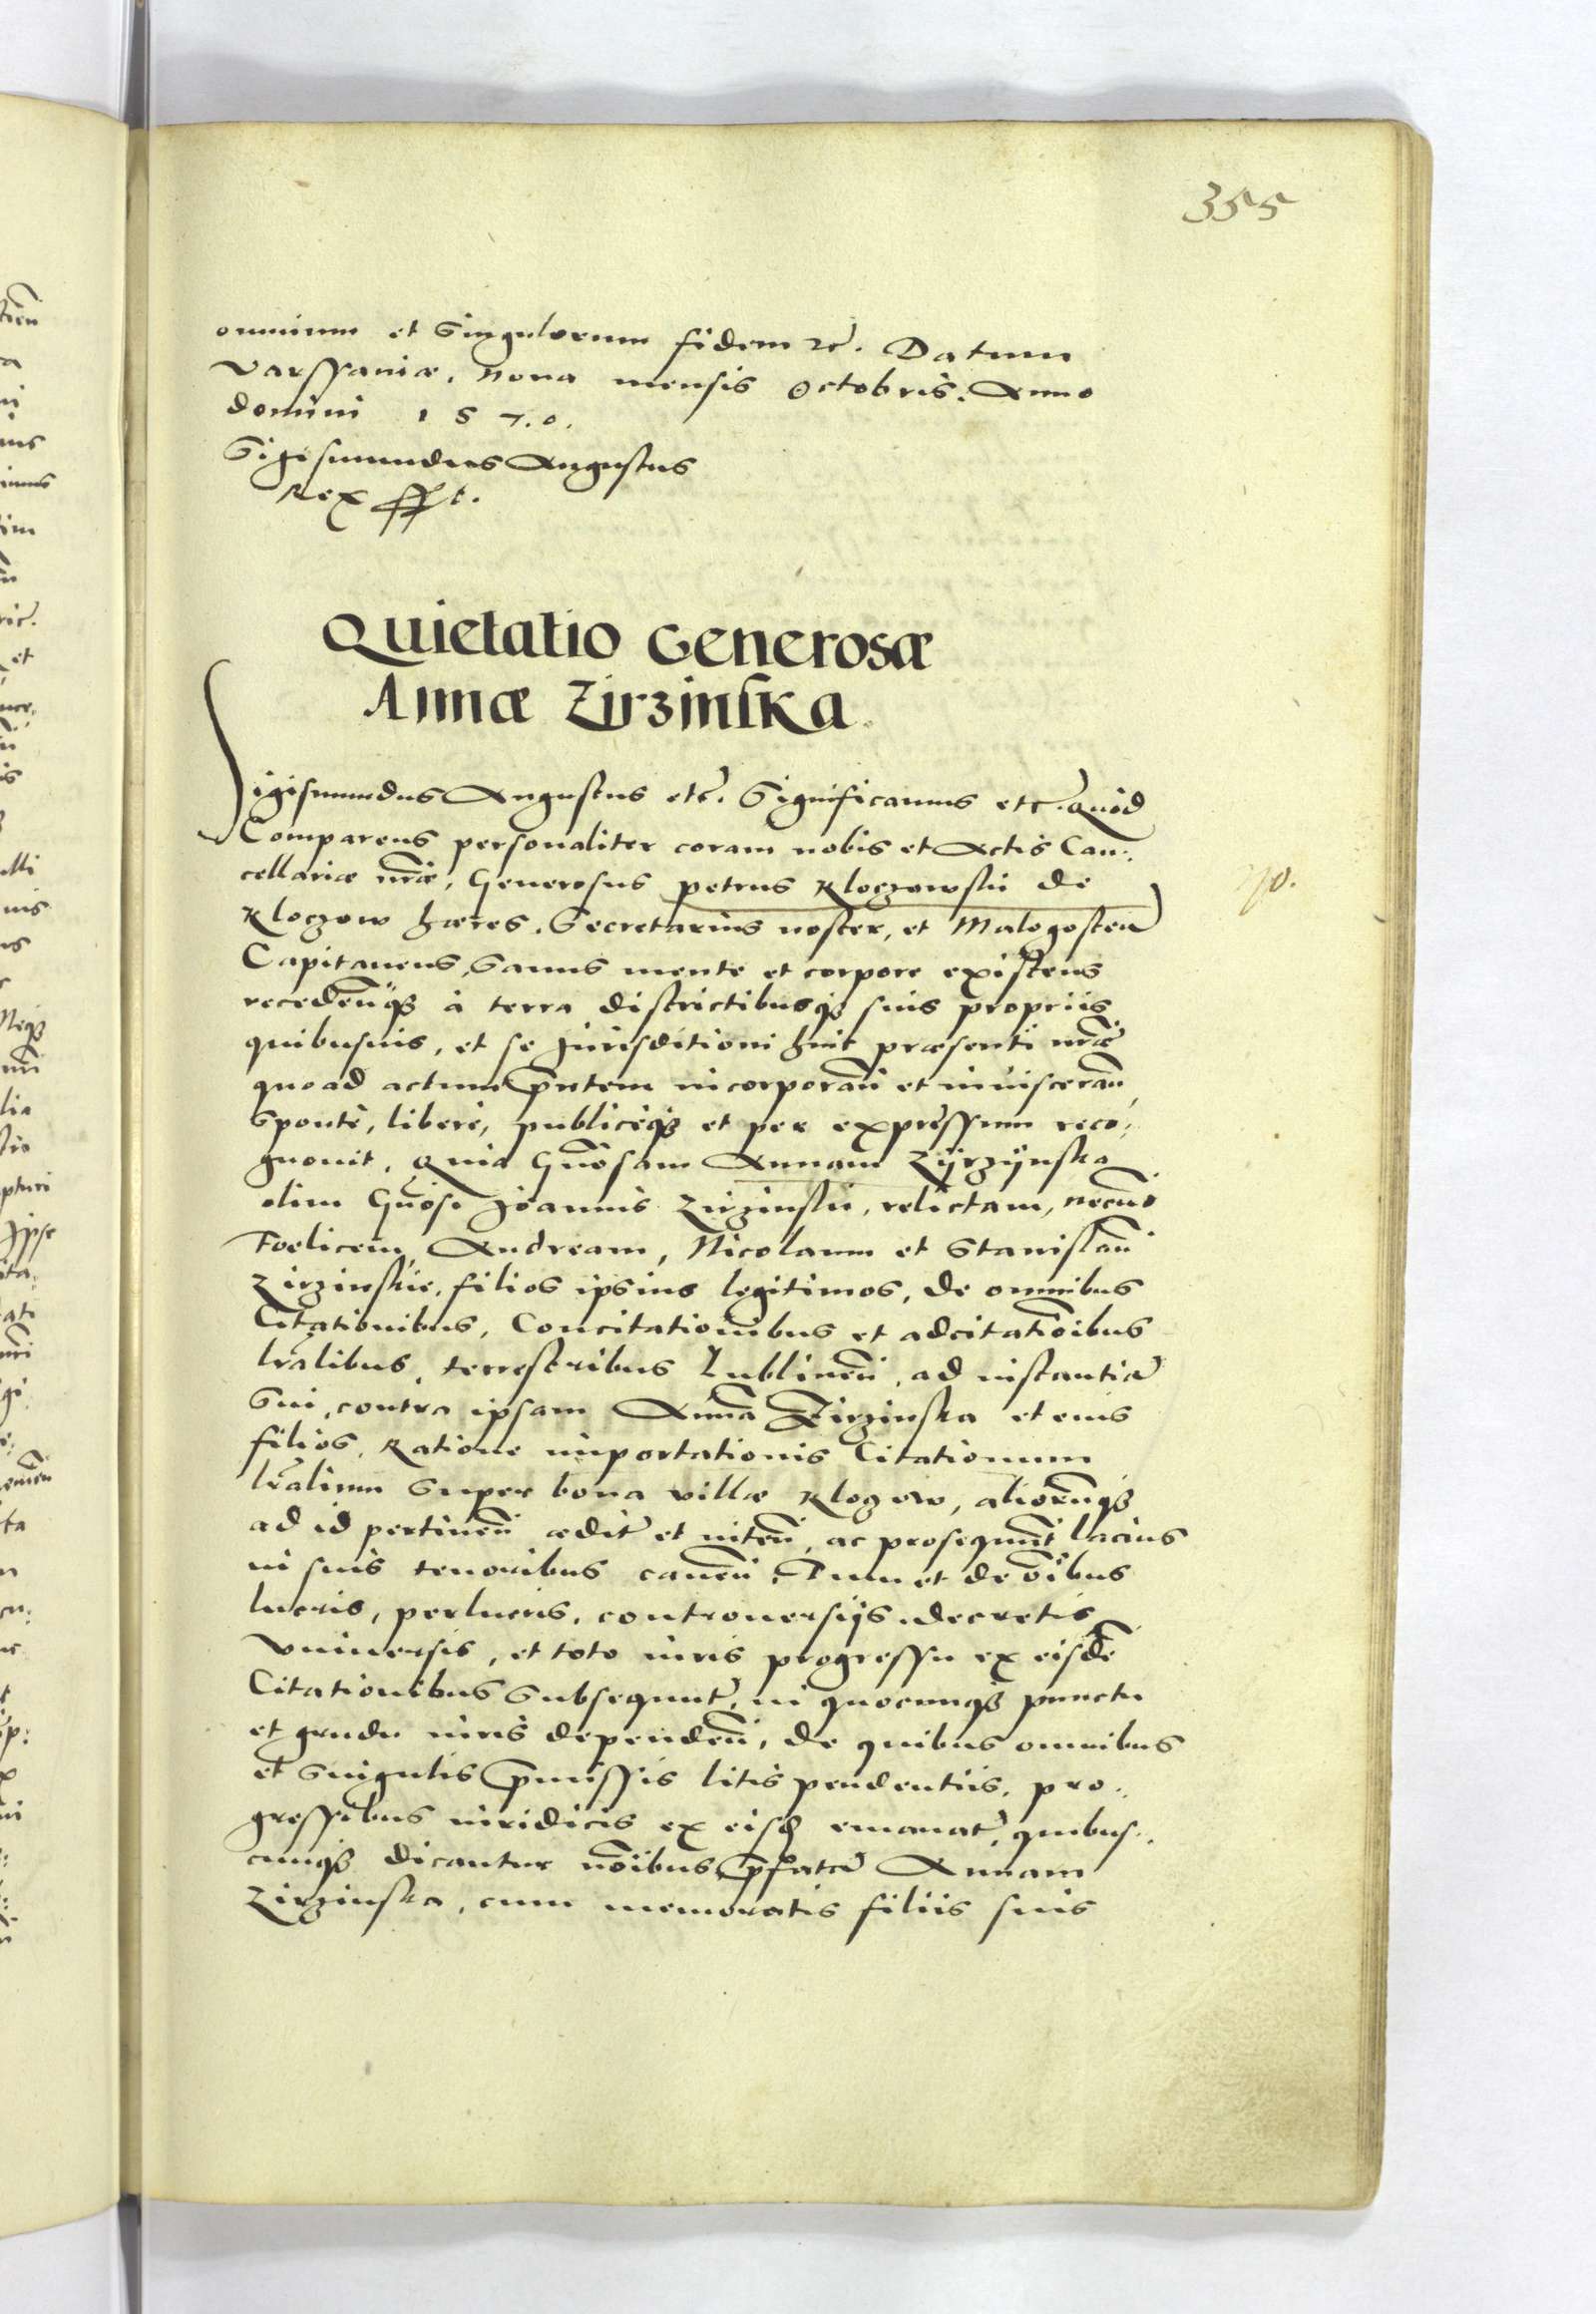 355
omnium et singulorum fidem etc̃. Datum
Varssaniæ, nona mensis Octobris. Anno
domini 1 5 7.0.
Sigismundus Augustus
Rex sst.
Quietatio Generosæ
Annæ Zirzinska.
Sigismundus Augustus etc̃. Significamus etc. Quod
Comparens personaliter coram nobis et Actis Can:
cellariæ nr̃æ, Generosus petrus Kloczowski de
Kloczow hæres, Secretarius noster, et Malogosten̄
Capitaneus, Sanus mente et corpore existens
recedenn̄q3 à terra districtibusq3 suis propriis
quibusuis, et se Jurisditioni huic præsenti nr̃æ
quo ad actum p̄ntem incorporan̄ et inuisceran̄,
Sponte, libere, publiceq3 et per expressum reco:
gnouit, Quia Gn̄osam Annam Zÿrzÿnska
olim Gn̄osi Joannis Zirzinskii, relictam, necnō
Foelicem, Andream, Nicolaum et Stanislaū
Zirzinskie, filios ipsius legitimos, de omnibus
Citationibus, Concitationibus et adcitatiōibus
lr̃alibus, terrestribus Lublinen̄, ad instantiā
Sui, contra ipsam Annā Zirzinska et eius
filios, Ratione importationis Citationum
lr̃alium Super bona villæ Kloczow, aliorum̄q3
ad id pertinen̄ ædit̃ et niten̄, ac prosequun̄t lacius
in suis tenoribus canen̄. Tum et de ōibus
lucris, perlucris, controuersijs, decretis
vniuersis, et toto iuris progressu ex eisdē
Citationibus Subsequut̃, in quocunq3 punctu
et gradu iuris dependen̄, de quibus omnibus
et Singulis p̄missis litis pendentiis, pro:
gressibus iuridicis ex eisd̄ emanat̃, quibus:
cunq3 dicantur nōibus, p̄fatā Annam
Zirzinska, cum memoratis filiis suis